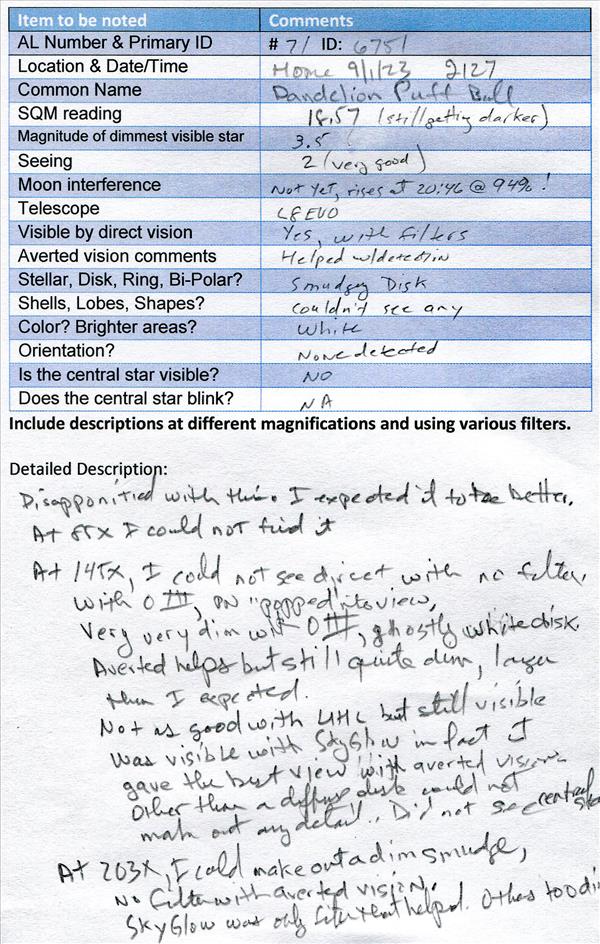 Item to be noted Comments
AL Number & Primary ID # 71 ID: 6751
Location & Date/Time Home 9/1/23 2127
Common Name Dandelion Puff Ball
SQM reading 18.57 (still getting darker)
Magnitude of dimmest visible star 3.5
Seeing 2 (very good)
Moon interference Not yet, rises at 20:46 @ 94%!
Telescope C8 EVO
Visible by direct vision Yes, with filters
Averted vision comments Helped w/detection
Stellar, Disk, Ring, Bi-Polar? Smudgey Disk
Shells, Lobes, Shapes? Couldn't see any
Color? Brighter areas? White
Orientation? None detected
Is the central star visible? NO
Does the central star blink? NA
Include descriptions at different magnifications and using various filters.
Detailed Description:
Disapponitied with this. I expected it to be better.
At 85X I could not find it
At 145X, I could not see direct with no filter,
with OIII, PN "popped" into view,
Very very dim with OIII, ghostly white disk.
Averted helps but still quite dim, larger
than I expected.
Not as good with UHC but still visible
Was visible with SkyGlow in fact it
gave the best view with averted vision.
Other than a diffuse disk could not
make out any detail. Did not see central star
At 203X, I could make out a dim smudge,
No filter with averted vision.
SkyGlow was only filter that helped. Others too di